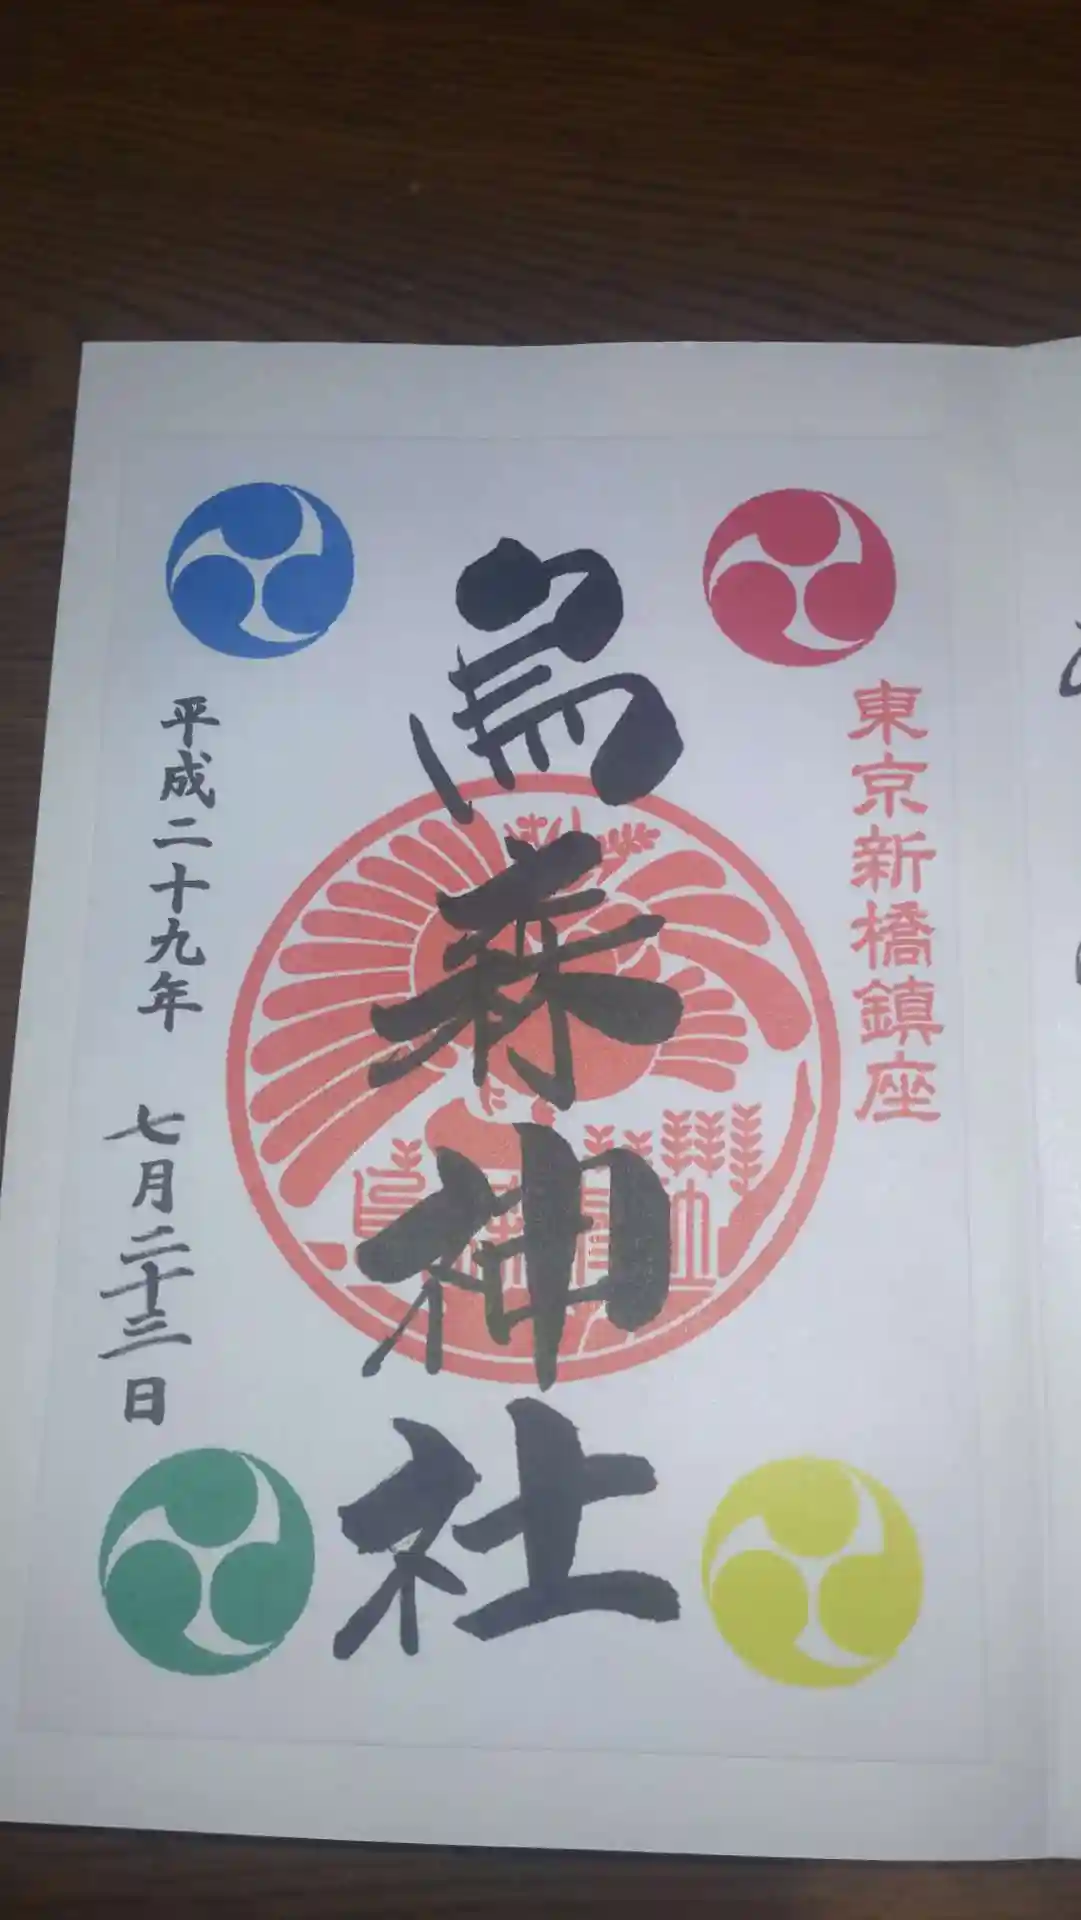 東京新橋鎮座
烏森神社
平成二十九年 七月二十三日